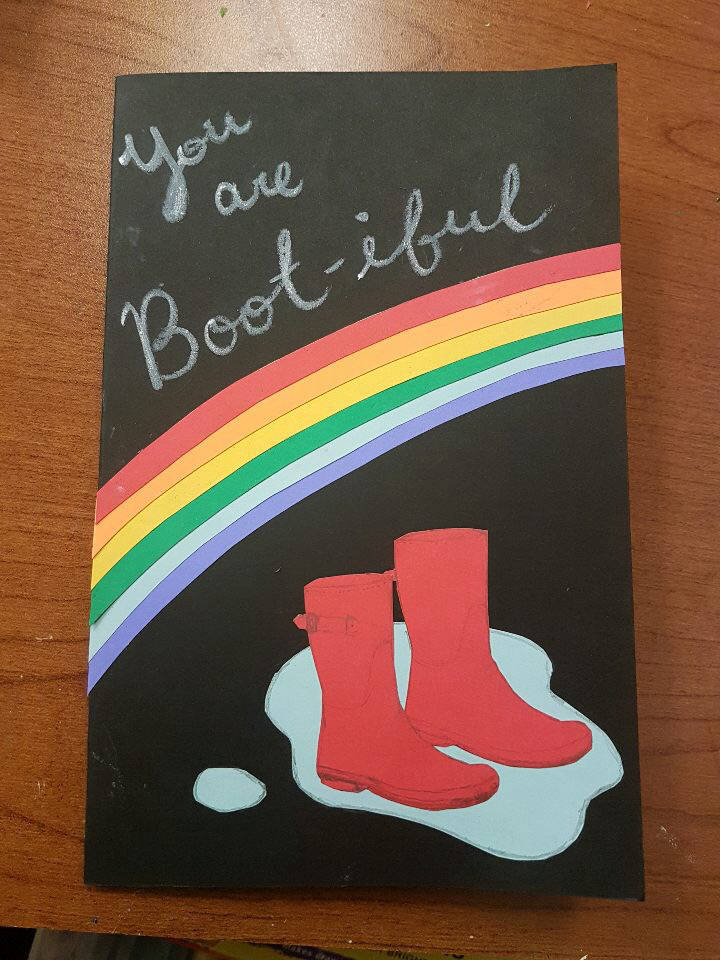 You
are
Boot-iful